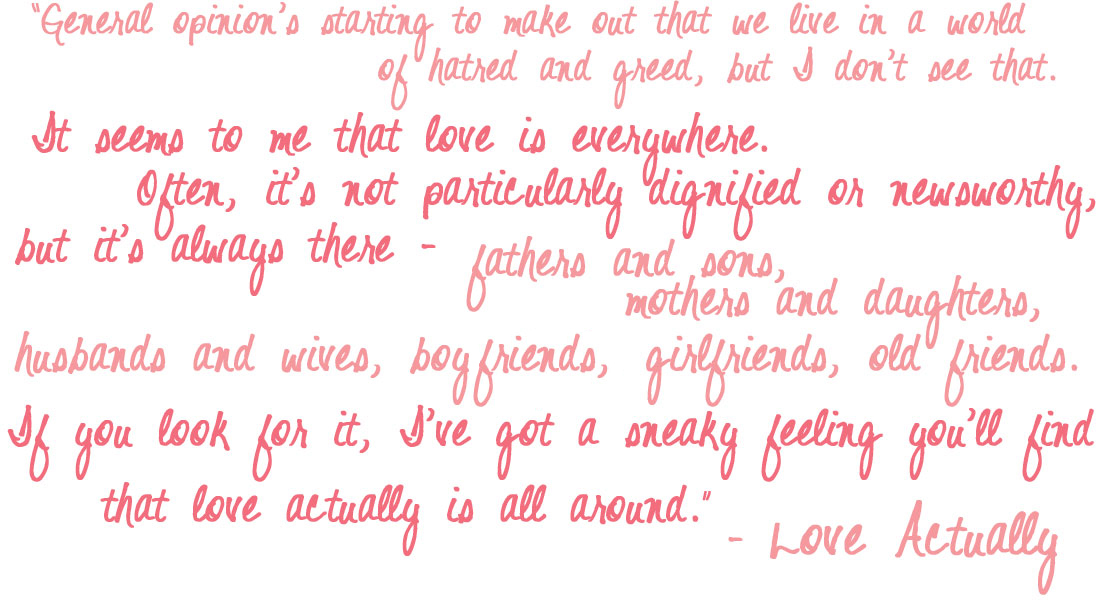 "General opinion's starting to make out that we live in a world
of hatred and greed, but I don't see that.
It seems to me that love is everywhere.
Often, it's not particularly dignified or newsworthy,
but it's always there - fathers and sons,
mothers and daughters,
husbands and wives, boyfriends, girlfriends, old friends.
If you look for it, I've got a sneaky feeling you'll find
that love actually is all around."
- Love Actually